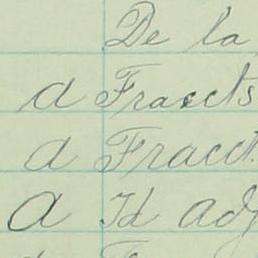 De la
a Fraccts
a Fracct.
a Id adj